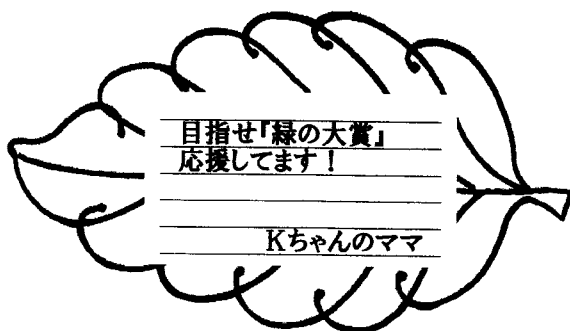 目指せ『緑の大賞』
応援してます！
Kちゃんのママ